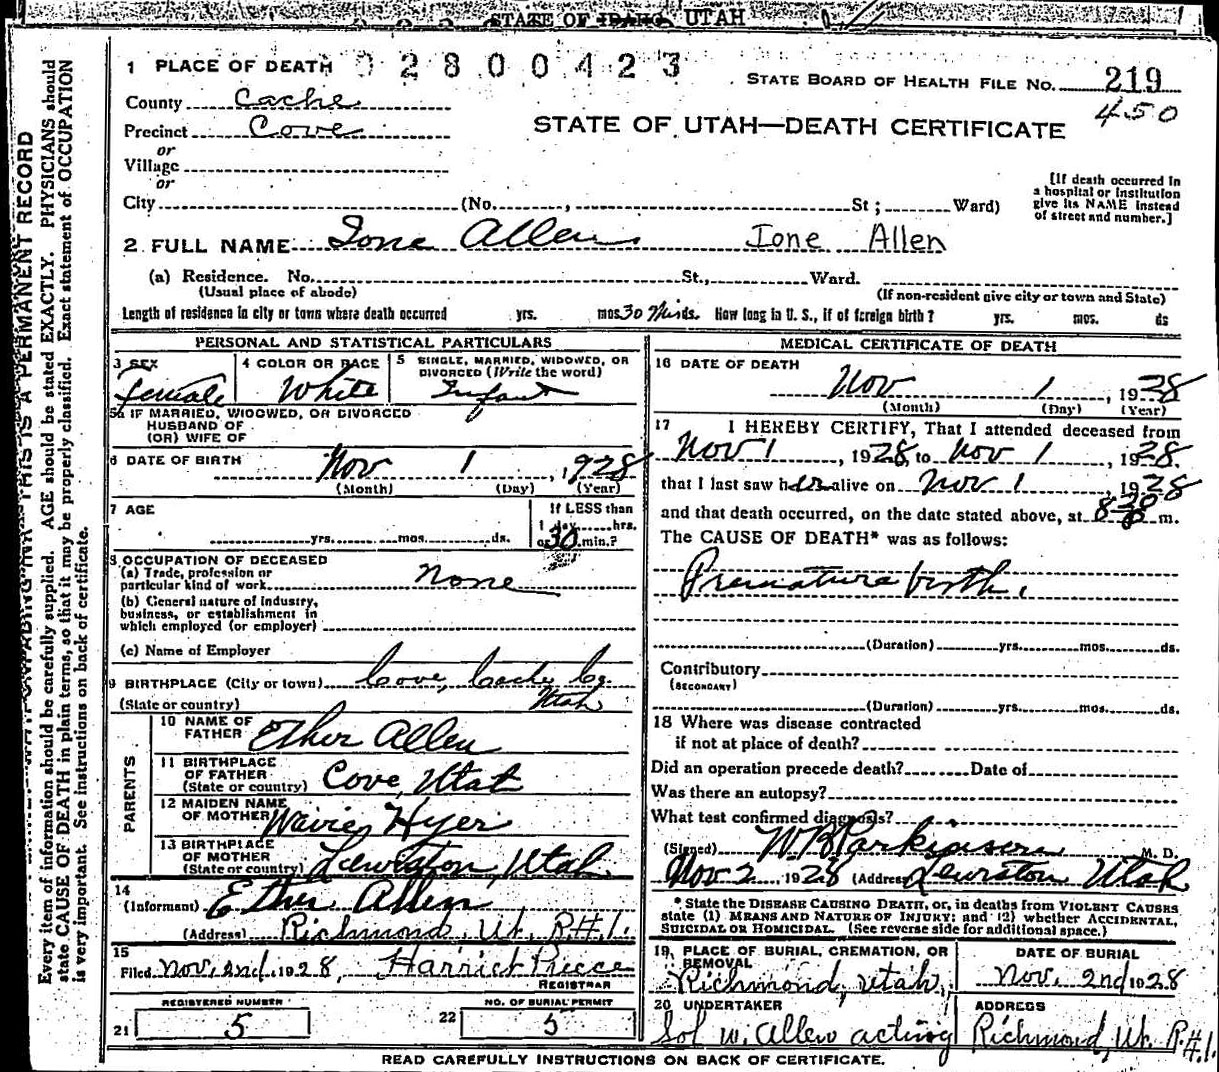 STATE OF IDAHO, UTAH
02800423
1 PLACE OF DEATH
STATE BOARD OF HEALTH FILE NO. 219
450
County Cache
Precinct Cove
STATE OF UTAH—DEATH CERTIFICATE
or
Village
or
City (No. , St; Ward)
[If death occurred in
a hospital or institution
give its NAME instead
of street and number.]
2 FULL NAME Ione Allen Ione Allen
(a) Residence. No. St., Ward.
(Usual place of abode) (If non-resident give city or town and State)
Length of residence in city or town where death occurred yrs. mos. 30 Mins. How long in U. S., if of foreign birth? yrs. mos. ds
PERSONAL AND STATISTICAL PARTICULARS
3 SEX
Female
4 COLOR OR RACE
White
5 SINGLE, MARRIED, WIDOWED, OR
DIVORCED (Write the word)
Infant
5a IF MARRIED, WIDOWED, OR DIVORCED
HUSBAND OF
(OR) WIFE OF
6 DATE OF BIRTH Nov 1, 1928
(Month) (Day) (Year)
7 AGE
yrs. mos. ds.
If LESS than
1 day hrs.
or 30 min.?
8 OCCUPATION OF DECEASED
(a) Trade, profession or
particular kind of work none
(b) General nature of industry,
business, or establishment in
which employed (or employer)
(c) Name of Employer
9 BIRTHPLACE (City or town) Cove, Cache Co.
(State or country) Utah
PARENTS
10 NAME OF
FATHER Ether Allen
11 BIRTHPLACE
OF FATHER
(State or country) Cove, Utah
12 MAIDEN NAME
OF MOTHER Hyer
13 BIRTHPLACE
OF MOTHER
(State or country) Lewiston, Utah
14
(Informant) Ether Allen
(Address) Richmond, Ut. R#1.
15
Filed Nov. 2nd, 1928, Harriet Preece
REGISTRAR
REGISTERED NUMBER
21 5
NO. OF BURIAL PERMIT
22 5
MEDICAL CERTIFICATE OF DEATH
16 DATE OF DEATH
Nov 1, 1928
(Month) (Day) (Year)
17 I HEREBY CERTIFY, That I attended deceased from
Nov 1, 1928, to Nov 1, 1928.
that I last saw her alive on Nov 1, 1928
and that death occurred, on the date stated above, at m.
The CAUSE OF DEATH* was as follows:
Premature birth.
(Duration) yrs. mos. ds.
Contributory
(SECONDARY)
(Duration) yrs. mos. ds.
18 Where was disease contracted
if not at place of death?
Did an operation precede death? Date of
Was there an autopsy?
What test confirmed diagnosis?
(Signed) W.B. Parkinson M. D.
Nov 2, 1928 (Address) Lewiston Utah
* State the DISEASE CAUSING DEATH, or, in deaths from VIOLENT CAUSES
state (1) MEANS AND NATURE OF INJURY; and (2) whether ACCIDENTAL,
SUICIDAL OR HOMICIDAL. (See reverse side for additional space.)
19 PLACE OF BURIAL, CREMATION, OR
REMOVAL
Richmond, Utah,
DATE OF BURIAL
Nov. 2nd 1928
20 UNDERTAKER
Sol W. Allen acting
ADDRESS
Richmond, Ut. R.#1.
READ CAREFULLY INSTRUCTIONS ON BACK OF CERTIFICATE.
THIS IS A PERMANENT RECORD
Every item of information should be carefully supplied. AGE should be stated EXACTLY. PHYSICIANS should
state CAUSE OF DEATH in plain terms, so that it may be properly classified. Exact statement of OCCUPATION
is very important. See instructions on back of certificate.